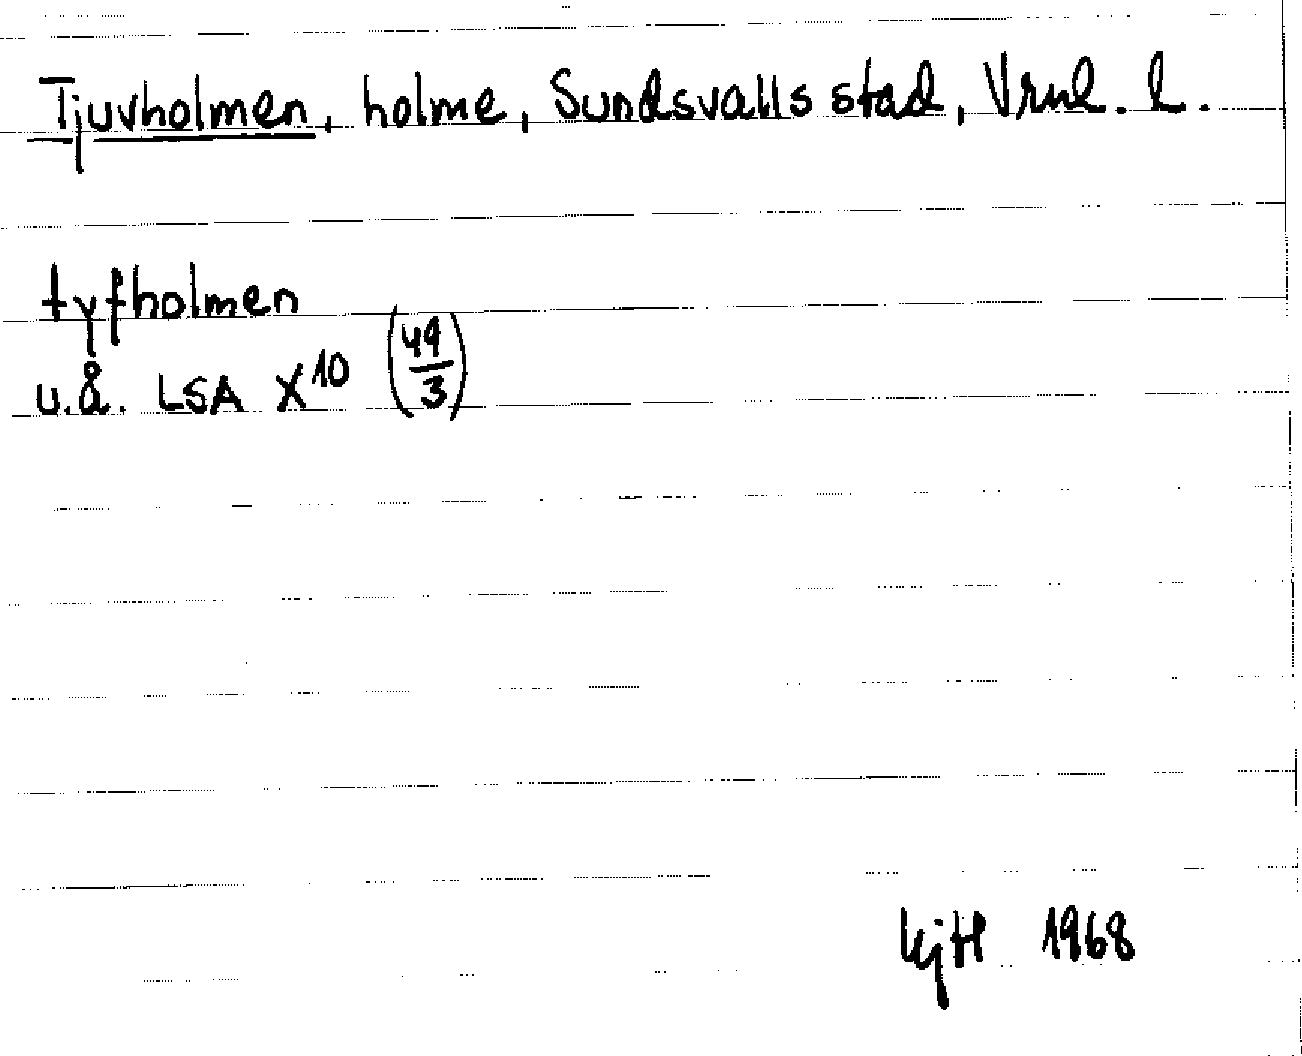 Tjuvholmen, holme, Sundsvalls stad, Vrml. l.
tyfholmen
u.å. LSA X¹⁰ (49/3)
KjH 1968